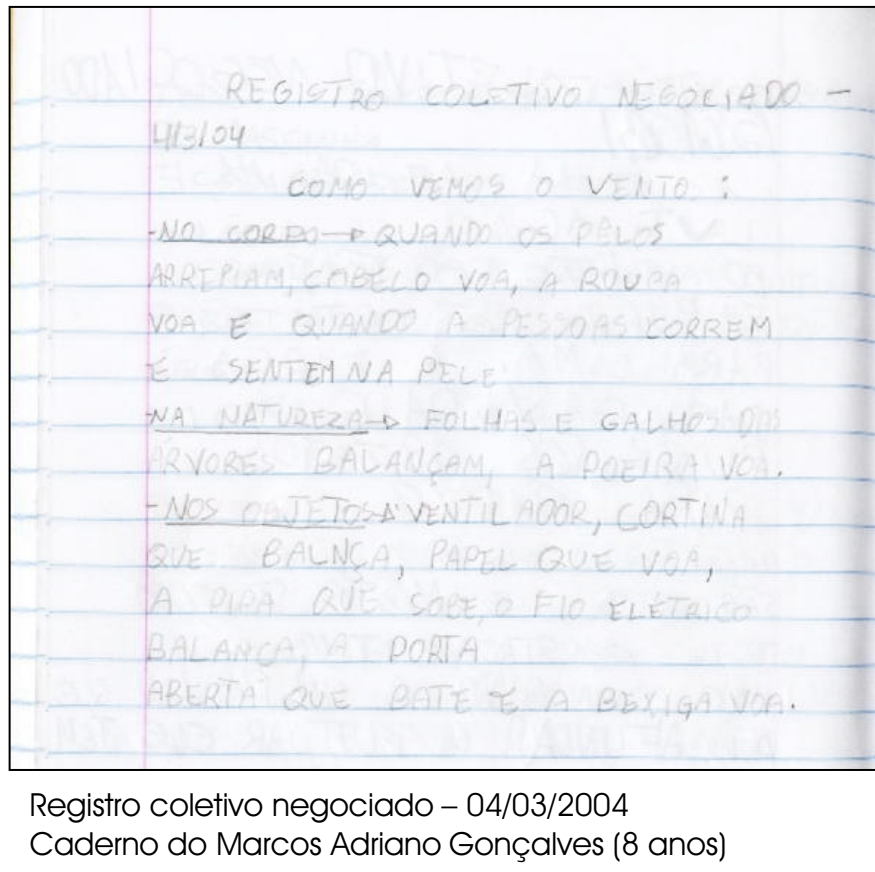 REGISTRO COLETIVO NEGOCIADO -
4/3/04
COMO VEMOS O VENTO :
-NO CORPO → QUANDO OS PELOS
ARREPIAM, CABELO VOA, A ROUPA
VOA E QUANDO A PESSOAS CORREM
E SENTEM NA PELE.
-NA NATUREZA → FOLHAS E GALHOS DAS
ÁRVORES BALANÇAM, A POEIRA VOA.
-NOS OBJETOS → VENTILADOR, CORTINA
QUE BALNÇA, PAPEL QUE VOA,
A PIPA QUE SOBE, O FIO ELÉTRICO
BALANÇA, A PORTA
ABERTA QUE BATE E A BEXIGA VOA.
Registro coletivo negociado – 04/03/2004
Caderno do Marcos Adriano Gonçalves (8 anos)